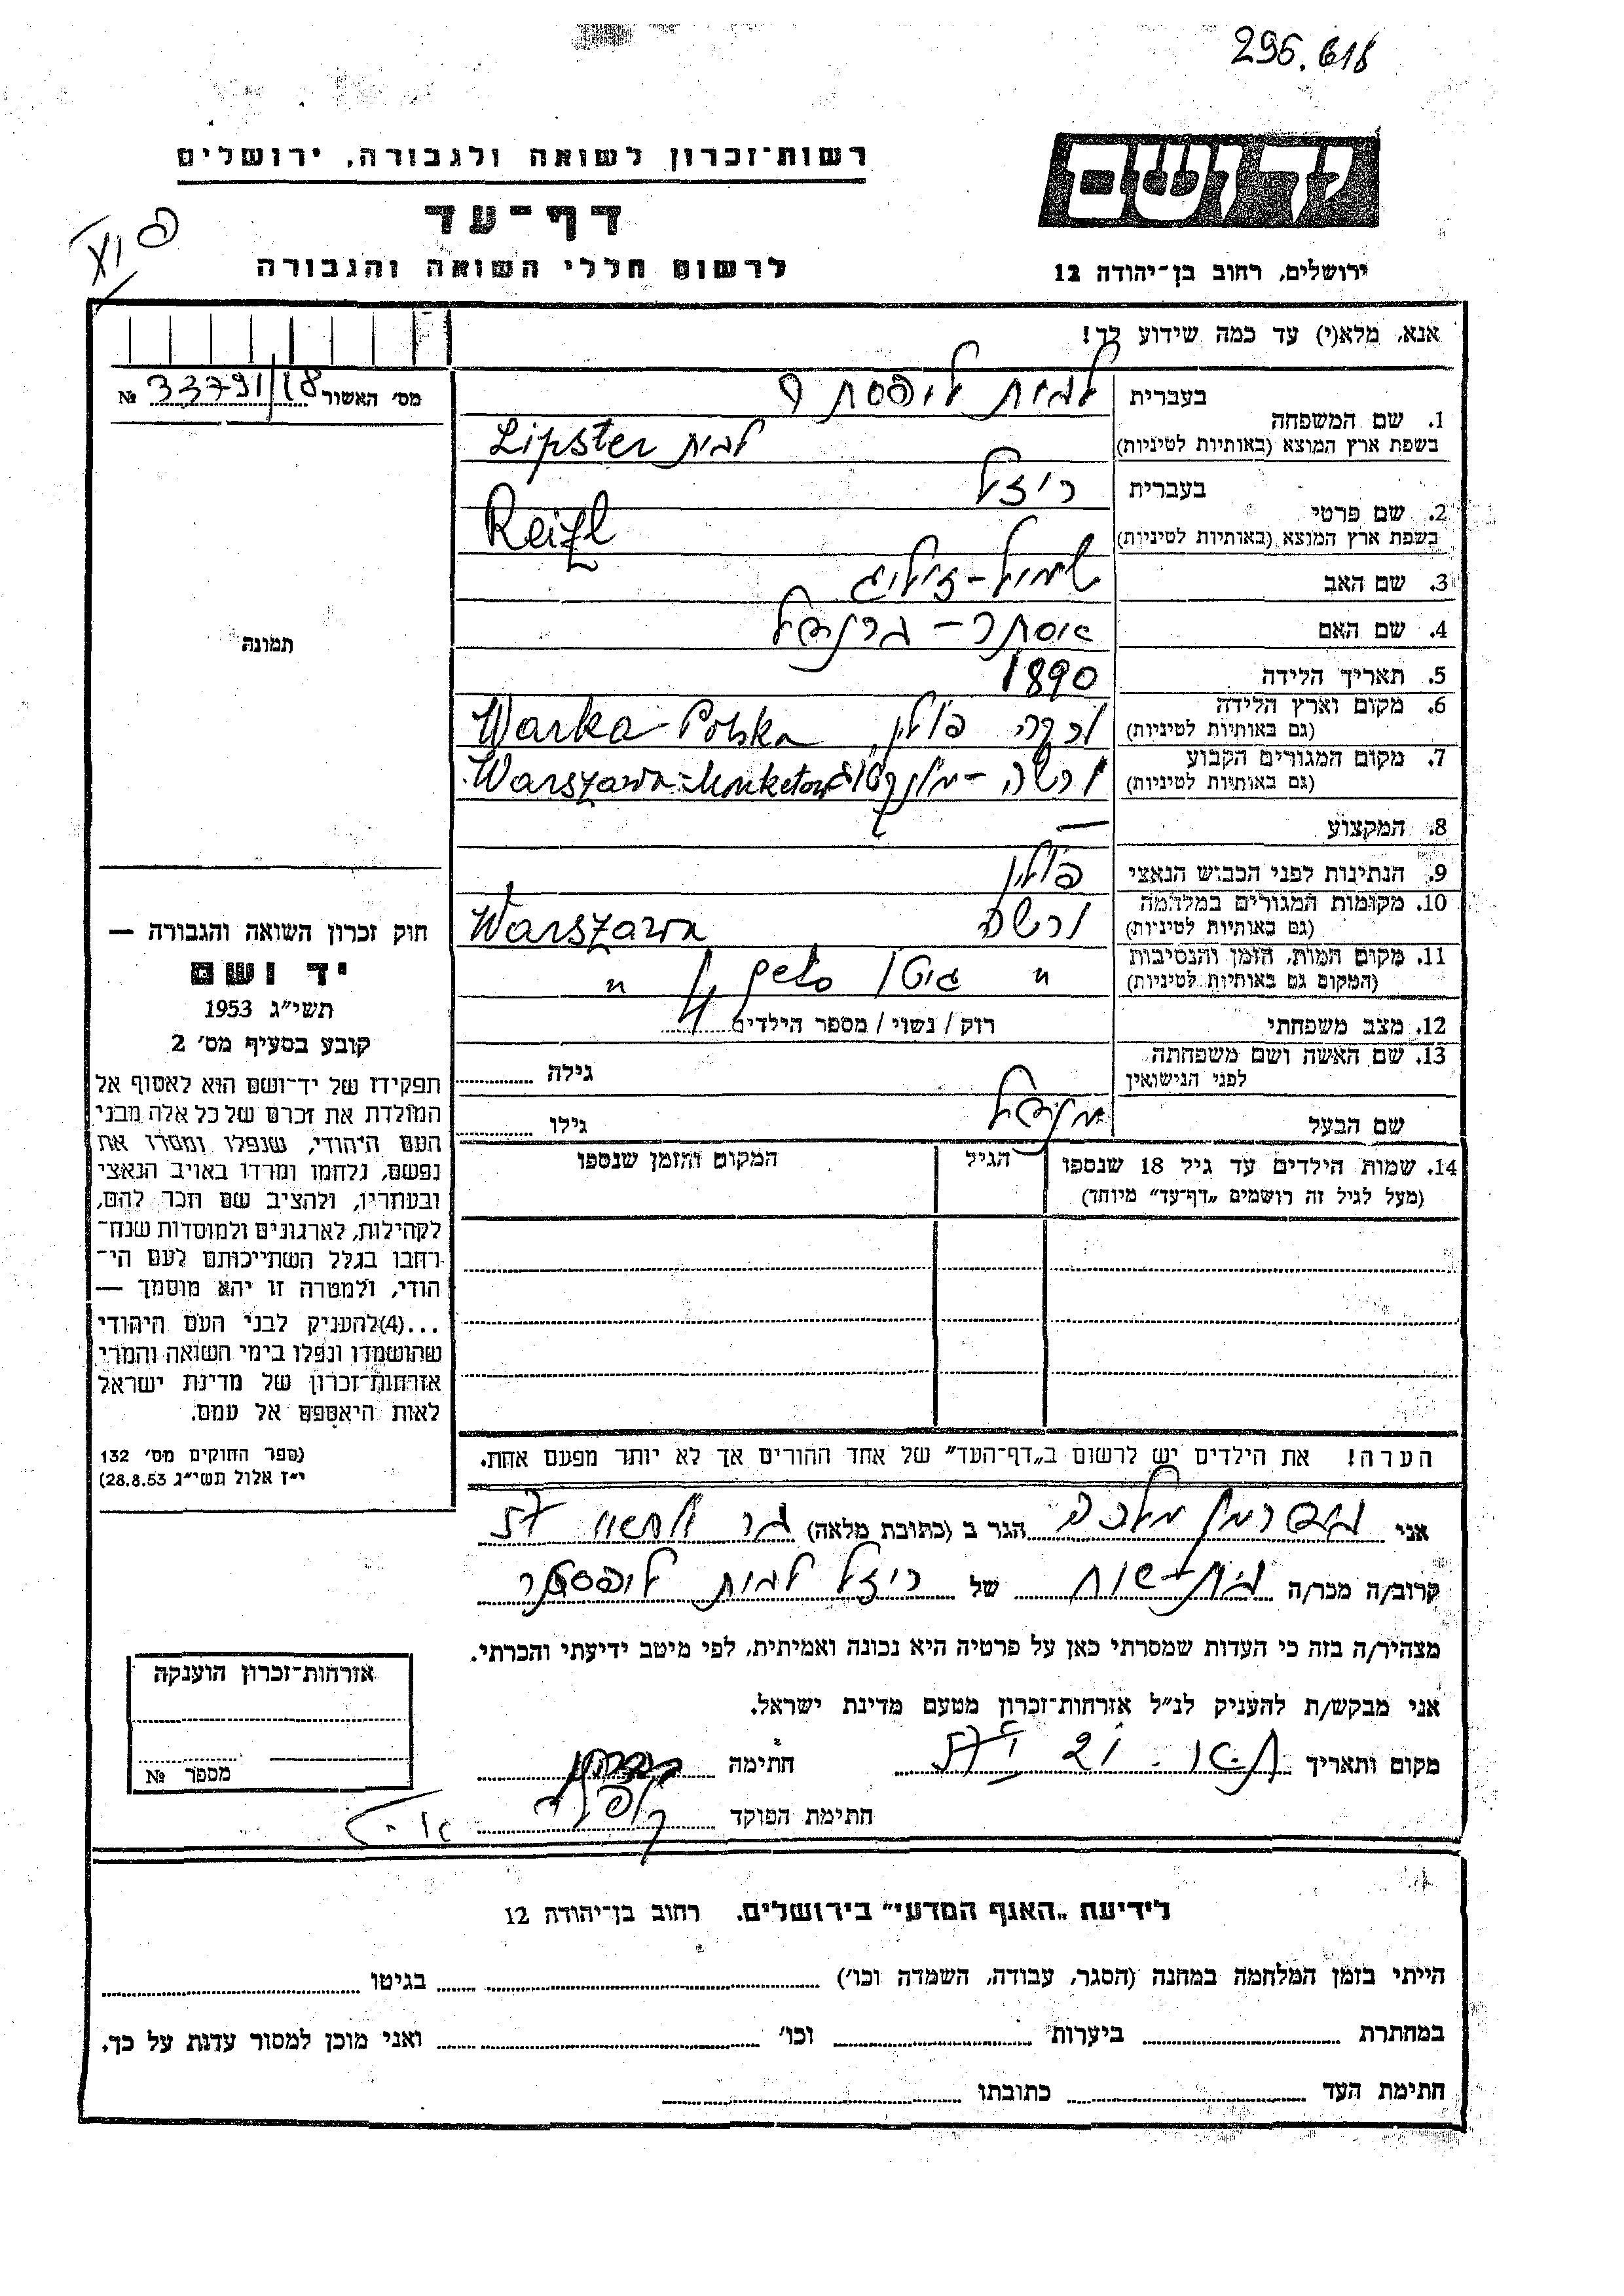 295.618
רשות־זכרון לשואה ולגבורה, ירושלים
יד ושם
דף־עד
לרשום חללי השואה והגבורה
ירושלים, רחוב בן־יהודה 12
אנא, מלא(י) עד כמה שידוע לך!
מס׳ האשור 33791/18 №
1. שם המשפחה
בעברית לבית ליפסתר
בשפת ארץ המוצא (באותיות לטיניות) לבית Lipster
2. שם פרטי
בעברית ריזל
בשפת ארץ המוצא (באותיות לטיניות) Reizl
3. שם האב שמואל-זיליג
4. שם האם אסתר -
5. תאריך הלידה 1890
6. מקום וארץ הלידה
(גם באותיות לטיניות) ורקה פולין Warka - Polska
7. מקום המגורים הקבוע
(גם באותיות לטיניות) ורשה - מוקוטוב Warszawa-Moketow
8. המקצוע —
9. הנתינות לפני הכבוש הנאצי פולין
10. מקומות המגורים במלחמה
(גם באותיות לטיניות) ורשה Warszawa
11. מקום המות, הזמן והנסיבות
(המקום גם באותיות לטיניות) " גיטו "
12. מצב משפחתי רוק / נשוי / מספר הילדים 4
13. שם האשה ושם משפחתה
לפני הנישואין גילה
שם הבעל גילו
14. שמות הילדים עד גיל 18 שנספו
(מעל לגיל זה רושמים „דף־עד״ מיוחד)
הגיל
המקום והזמן שנספו
הערה! את הילדים יש לרשום ב„דף־העד״ של אחד ההורים אך לא יותר מפעם אחת.
תמונה
חוק זכרון השואה והגבורה —
יד ושם
תשי״ג 1953
קובע בסעיף מס׳ 2
תפקידו של יד־ושם הוא לאסוף אל
המולדת את זכרם של כל אלה מבני
העם היהודי, שנפלו ומסרו את
נפשם, נלחמו ומרדו באויב הנאצי
ובעוזריו, ולהציב שם וזכר להם,
לקהילות, לארגונים ולמוסדות שנח־
רחבו בגלל השתייכותם לעם הי־
הודי, ולמטרה זו יהא מוסמך —
...(4)להעניק לבני העם היהודי
שהושמדו ונפלו בימי השואה והמרי
אזרחות־זכרון של מדינת ישראל
לאות היאספם אל עמם.
(ספר החוקים מס׳ 132
י״ז אלול תשי״ג 28.8.53)
אני הגר ב (כתובת מלאה)
קרוב/ה מכר/ה של ריזל לבית ליפסטר
מצהיר/ה בזה כי העדות שמסרתי כאן על פרטיה היא נכונה ואמיתית, לפי מיטב ידיעתי והכרתי.
אני מבקש/ת להעניק לנ״ל אזרחות־זכרון מטעם מדינת ישראל.
מקום ותאריך חתימה
חתימת הפוקד
אזרחות־זכרון הוענקה
מספר №
לידיעת „האגף המדעי״ בירושלים. רחוב בן־יהודה 12
הייתי בזמן המלחמה במחנה (הסגר, עבודה, השמדה וכו׳) בגיטו
במחתרת ביערות וכו׳ ואני מוכן למסור עדות על כך.
חתימת העד כתובתו